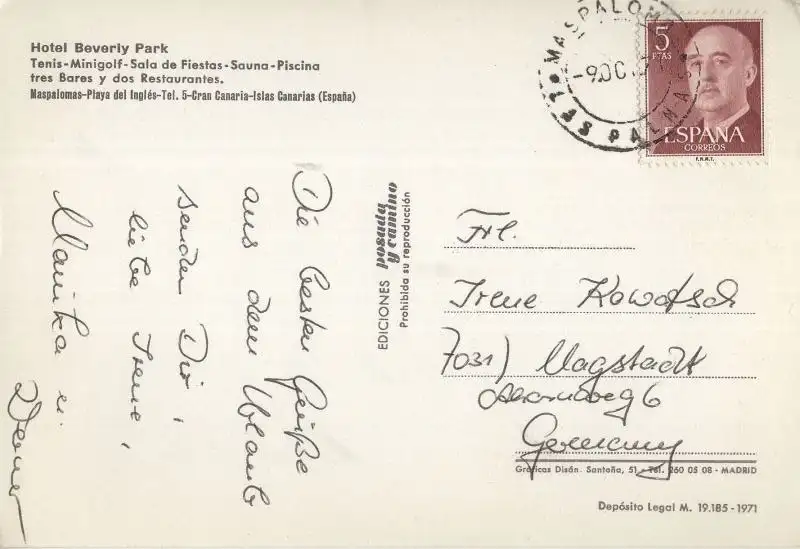 Hotel Beverly Park
Tenis-Minigolf-Sala de Fiestas-Sauna-Piscina
tres Bares y dos Restaurantes.
Maspalomas-Playa del Inglés-Tel. 5-Gran Canaria-Islas Canarias (España)
MASPALOMAS
-9 OC
LAS PALMAS
5
PTAS
ESPAÑA
CORREOS
F.N.M.T.
Die besten Grüße
aus dem Urlaub
senden Dir,
liebe Irene,
Marika u.
Werner
EDICIONES posada y camino
Prohibida su reproducción
Frl.
Irene Kowatsch
7031) Magstadt
6
Germany
Gráficas Disán. Santaña, 51 - Tel. 250 05 08 - MADRID
Depósito Legal M. 19.185 - 1971